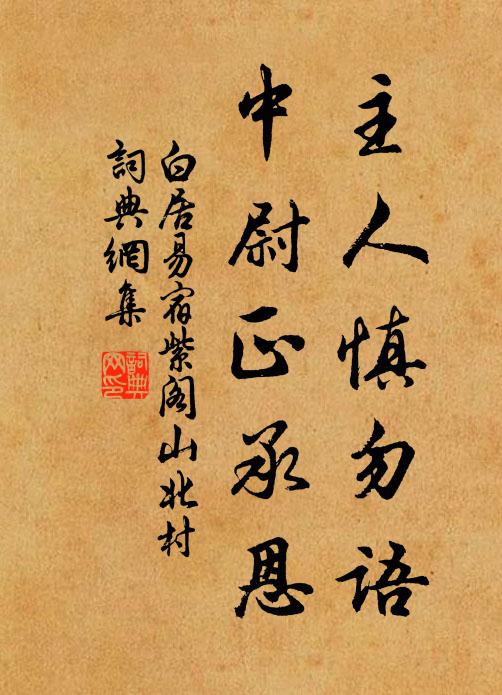 主人慎勿語
中尉正承恩
白居易宿紫阁山北村
詞典網集
詞典網印